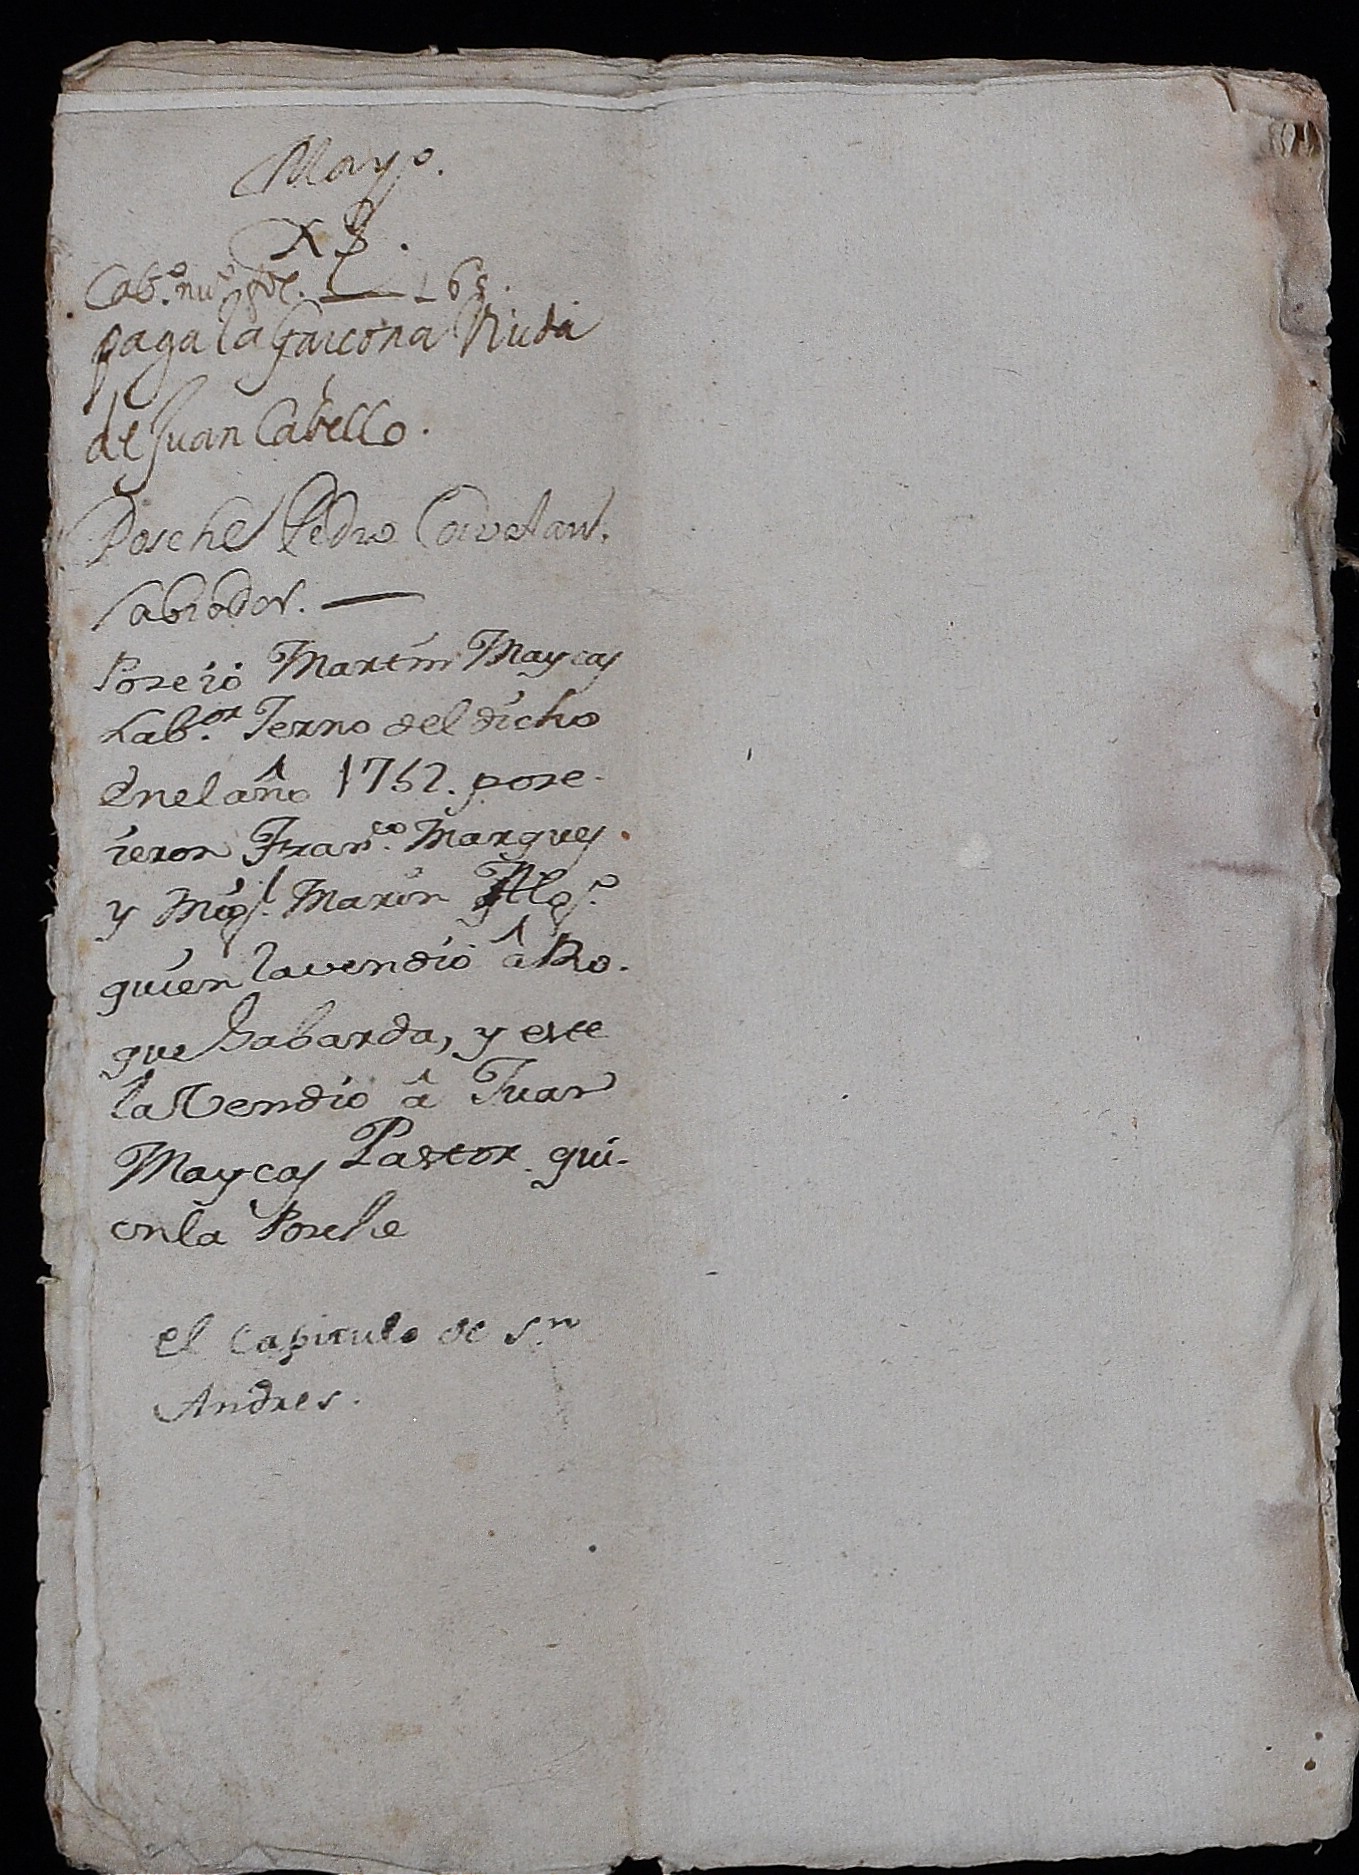 Mayo.
Cab.º nu.º fol. 165.
paga la Garcona Viuda
de Juan Cabello.
Posehe Pedro
labrador.
Posejó Martin Maycas
Lab.or Jerno del dicho
en el año 1752. pose-
ieron Fran.co Marques
y Mig.l Marin
quien la vendió â Ro-
que Gabarda, y este
la Vendio â Juan
Maycas Pastor qui-
en la Posehe
el Capitulo de S.n
Andres.